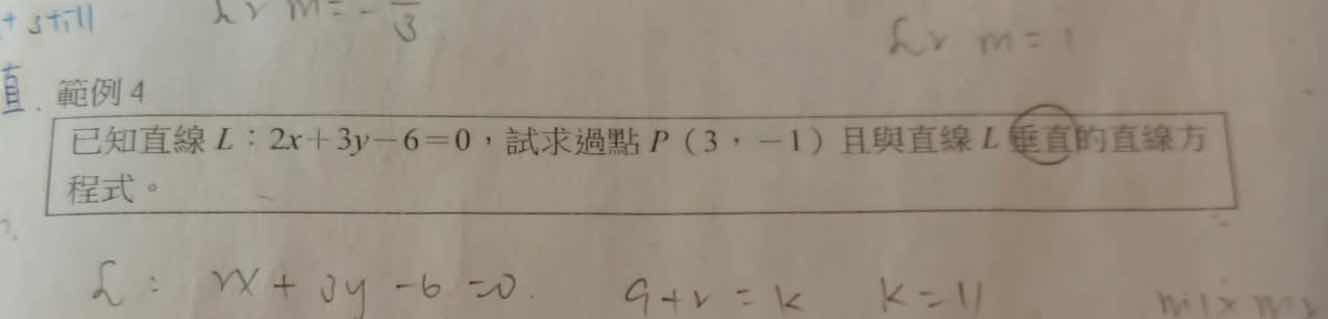 + still
L2 m = - 3
L2 m = 1
直. 範例 4
已知直線 L：2x+3y-6=0，試求過點 P（3，-1）且與直線 L 垂直的直線方
程式。
L : 2x + 3y - 6 = 0. 9+2 = k k = 11